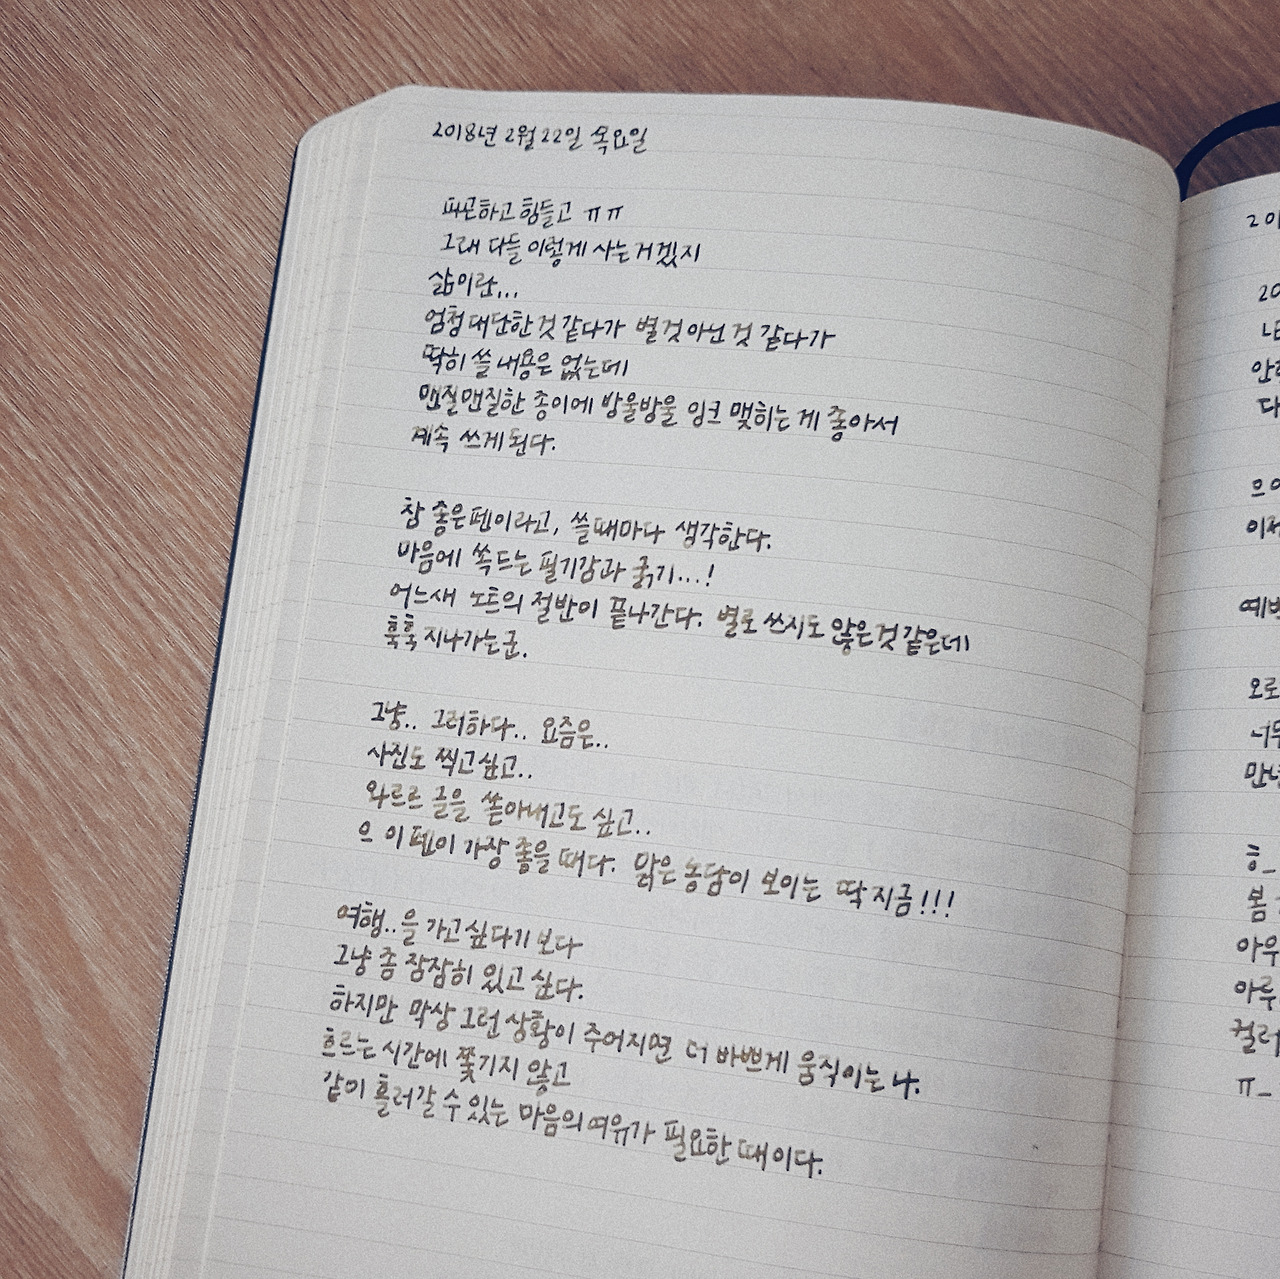 2018년 2월 22일 목요일
피곤하고 힘들고 ㅠㅠ
그래 다들 이렇게 사는거겠지
삶이란...
엄청 대단한것 같다가 별것 아닌 것 같다가
딱히 쓸 내용은 없는데
맨질맨질한 종이에 방울방울 잉크 맺히는 게 좋아서
계속 쓰게 된다.
참 좋은 펜이라고, 쓸때마다 생각한다.
마음에 쏙드는 필기감과 굵기...!
어느새 노트의 절반이 끝나간다. 별로 쓰시도 않은것 같은데
훅훅 지나가는군.
그냥.. 그러하다.. 요즘은..
사진도 찍고싶고..
와르르 글을 쏟아내고도 싶고..
으 이 펜이 가장 좋을 때다. 맑은 농담이 보이는 딱 지금!!!
여행..을 가고싶다기 보다
그냥 좀 잠잠히 있고 싶다.
하지만 막상 그런 상황이 주어지면 더 바쁘게 움직이는 나.
흐르는 시간에 쫓기지 않고
같이 흘러갈 수 있는 마음의 여유가 필요한 때이다.
201
20
안
다
으이
이제
예
오로
너무
만년
흐_
봄
아우
아루
컬러
ㅠ_